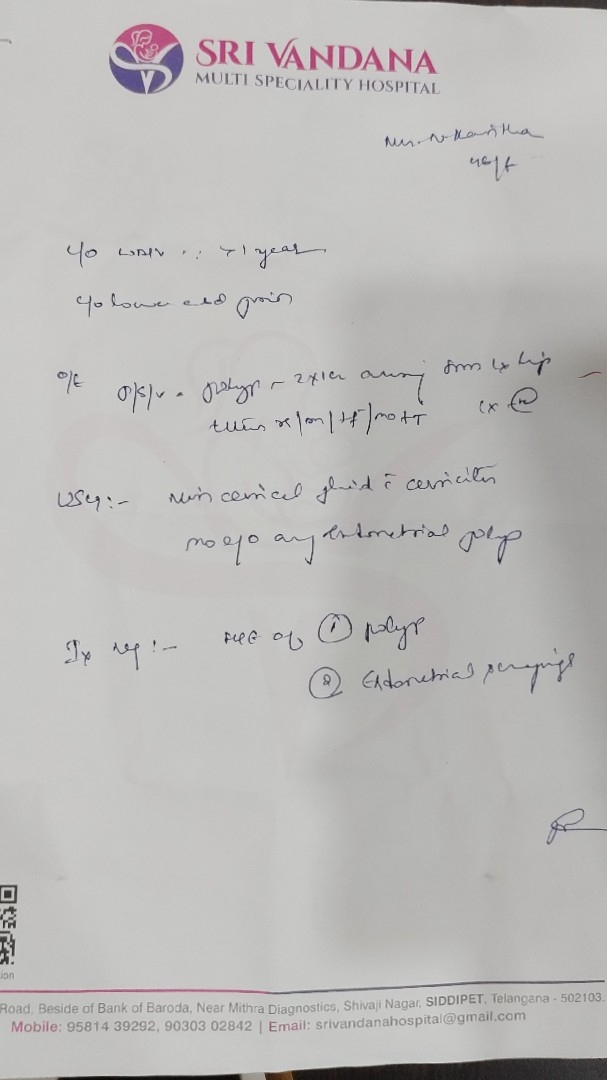 SRI VANDANA
MULTI SPECIALITY HOSPITAL
46/F
c/o >1 year
c/o lower abd pain
O/E P/S/V - polyp ~ 2x1cm arising from Cx lip
Cx
USG:- Min cervical fluid c̄ cervicitis
no e/o any Endometrial polyp
Ix req :- HPE of ① polyp
② Endometrial scrapings
ion
Road. Beside of Bank of Baroda, Near Mithra Diagnostics, Shivaji Nagar, SIDDIPET, Telangana - 502103.
Mobile: 95814 39292, 90303 02842 | Email: srivandanahospital@gmail.com